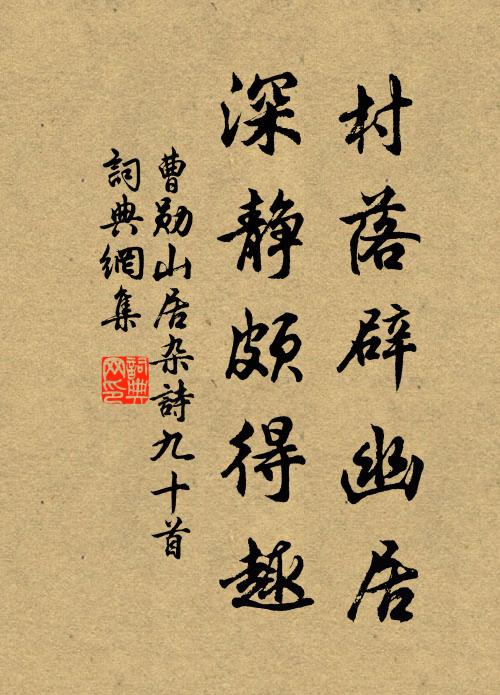 村落辟幽居
深静頗得趣
曹勋山居杂詩九十首
詞典網集
詞典网印